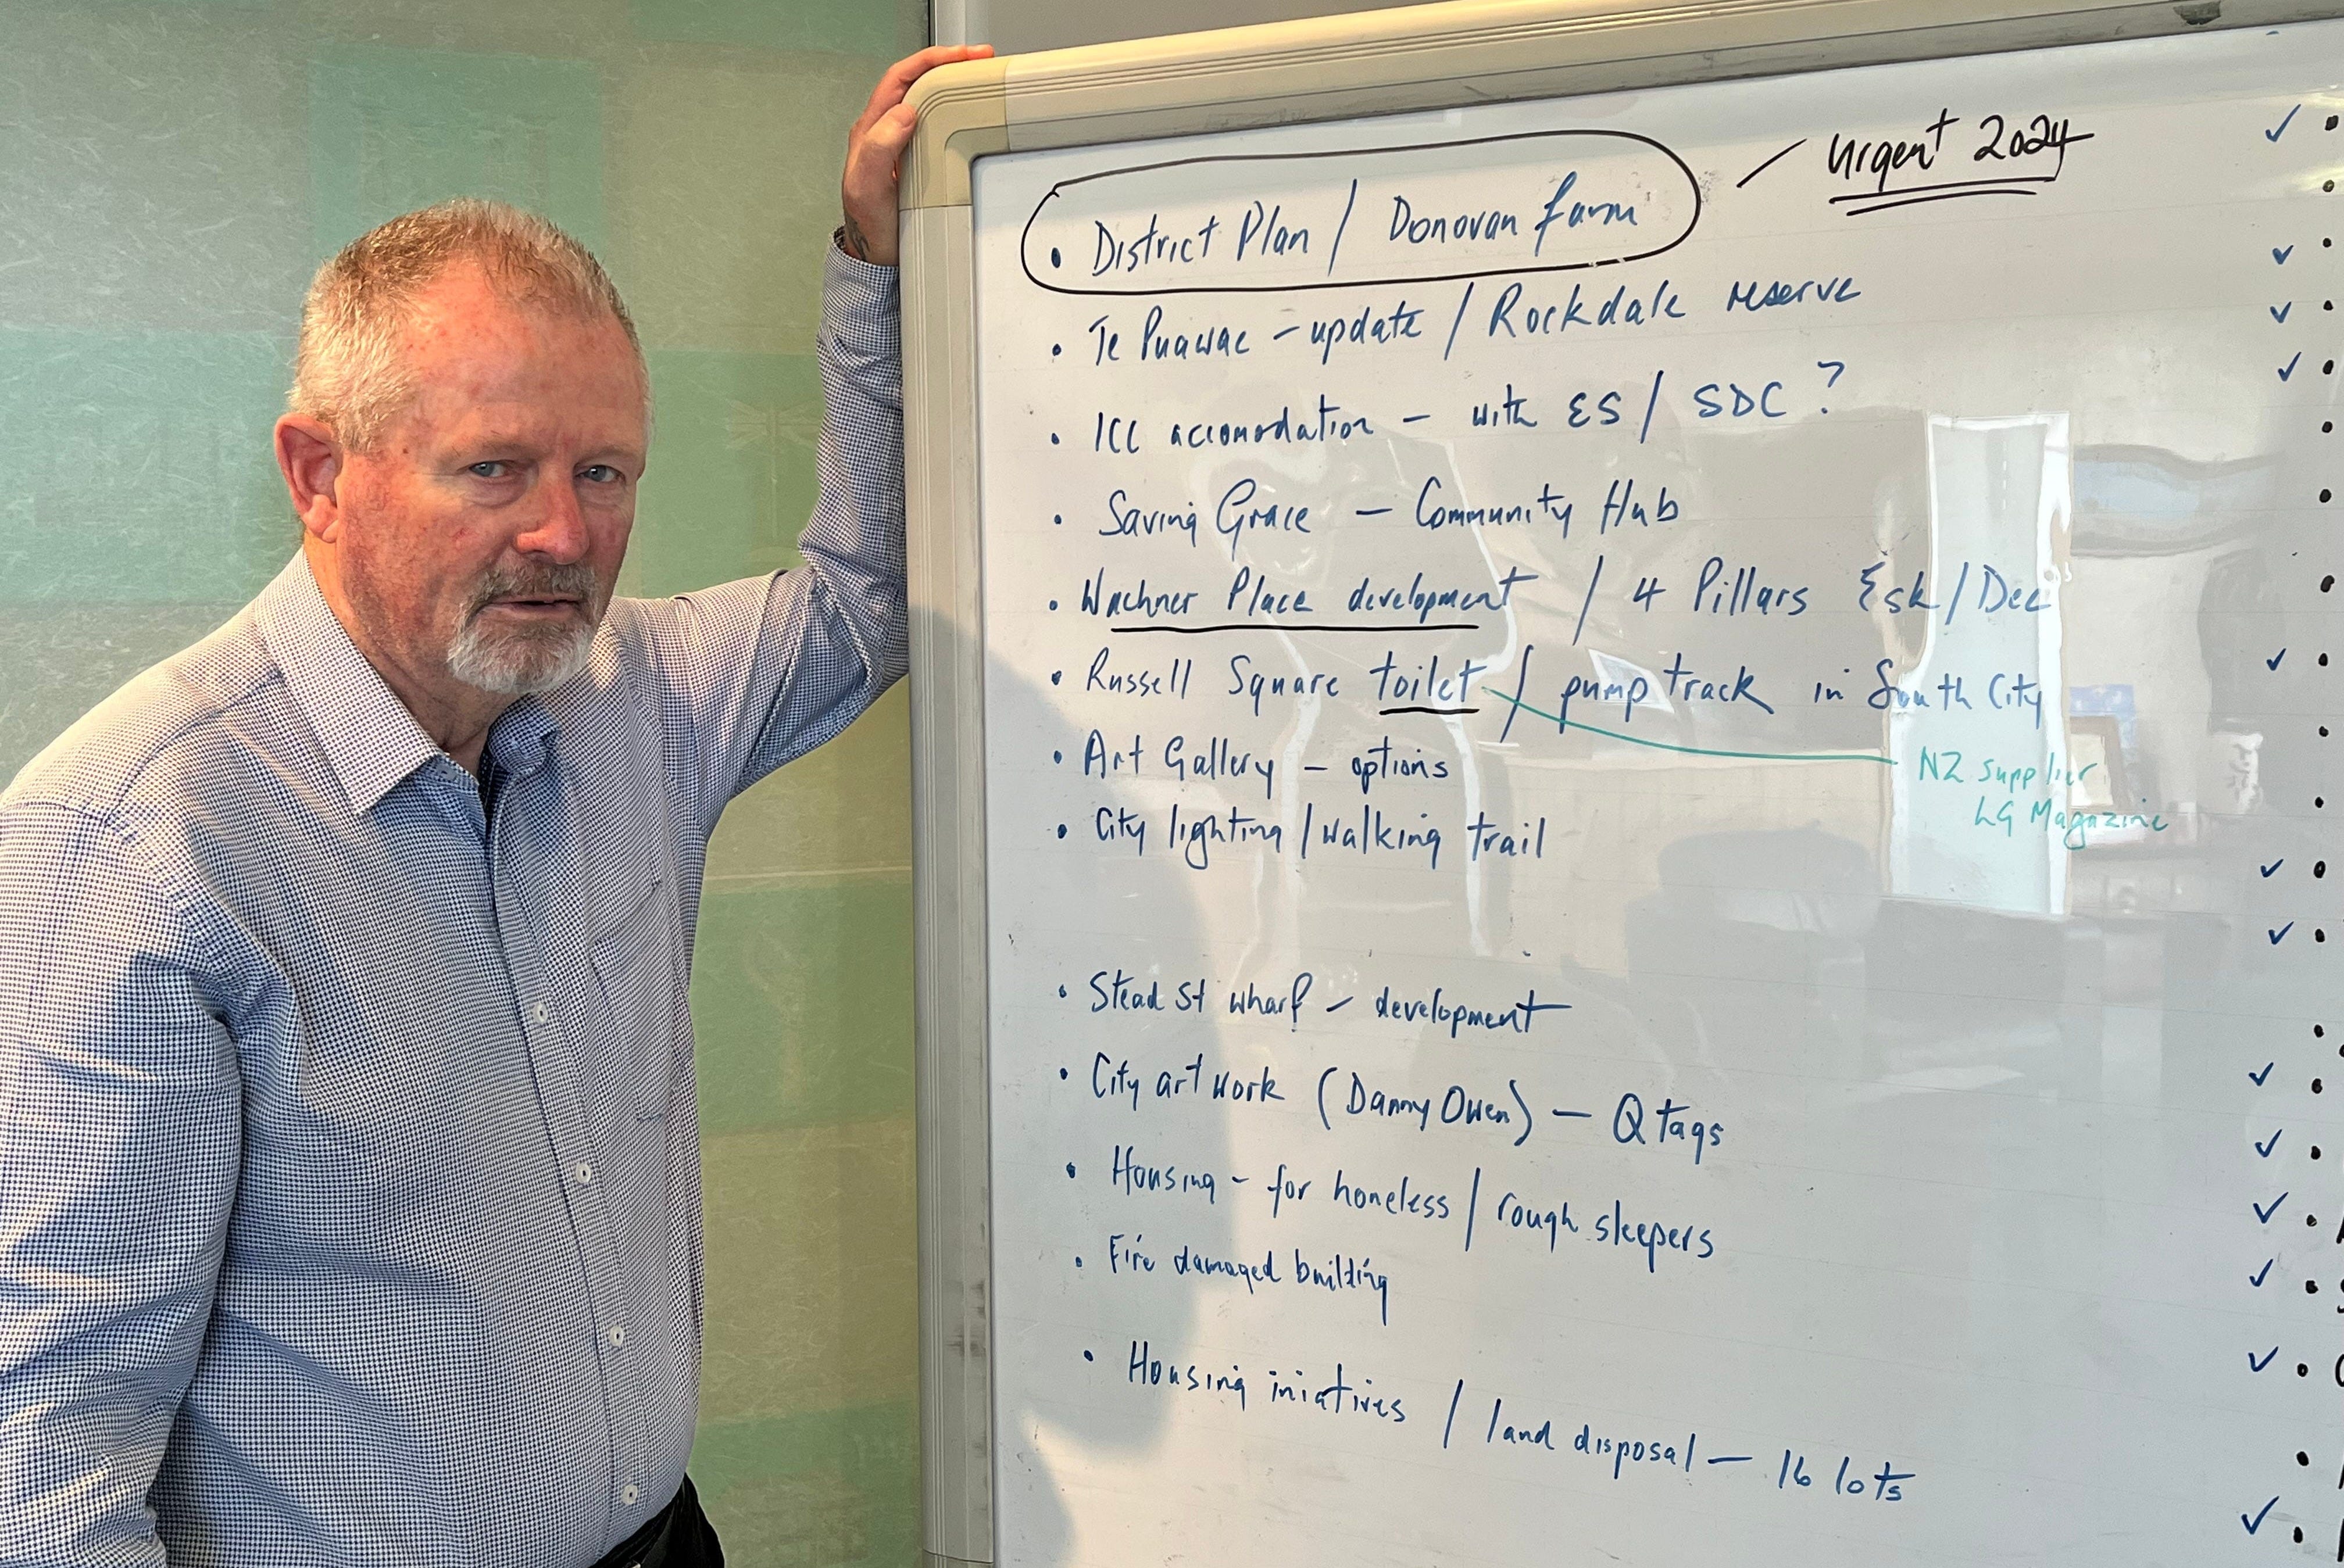 urgent 2024
• District Plan / Donovan farm
• Te Puawae – update / Rockdale reserve
• ICC accomodation – with ES / SDC ?
• Saving Grace – Community Hub
• Wachner Place development / 4 Pillars Esk/Dee
• Russell Square toilet / pump track in South City
NZ supplier
LG Magazine
• Art Gallery – options
• City lighting / walking trail
• Stead St wharf – development
• City art work (Danny Owen) – Q tags
• Housing – for homeless / rough sleepers
• Fire damaged building
• Housing iniatives / land disposal – 16 lots